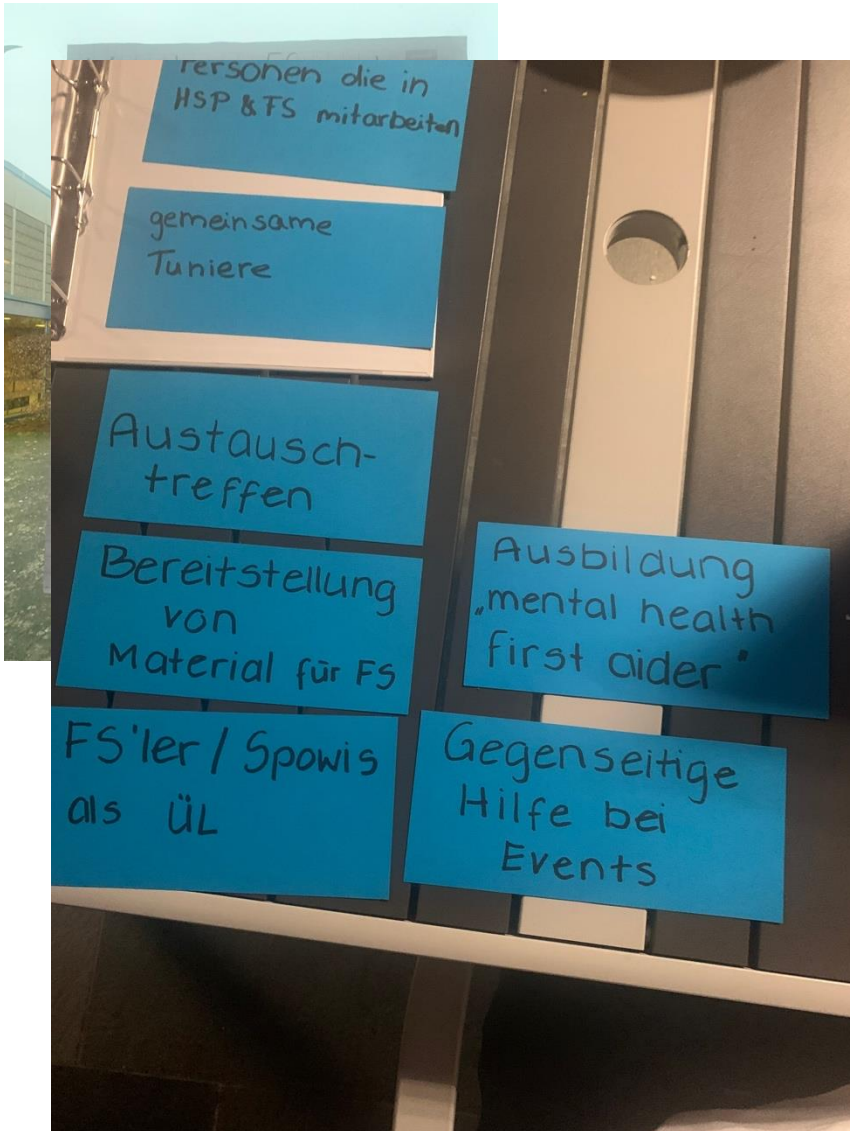 Personen die in
HSP & FS mitarbeiten
gemeinsame
Tuniere
Austausch-
treffen
Bereitstellung
von
Material für FS
FS'ler / Spowis
als ÜL
Ausbildung
„mental health
first aider"
Gegenseitige
Hilfe bei
Events